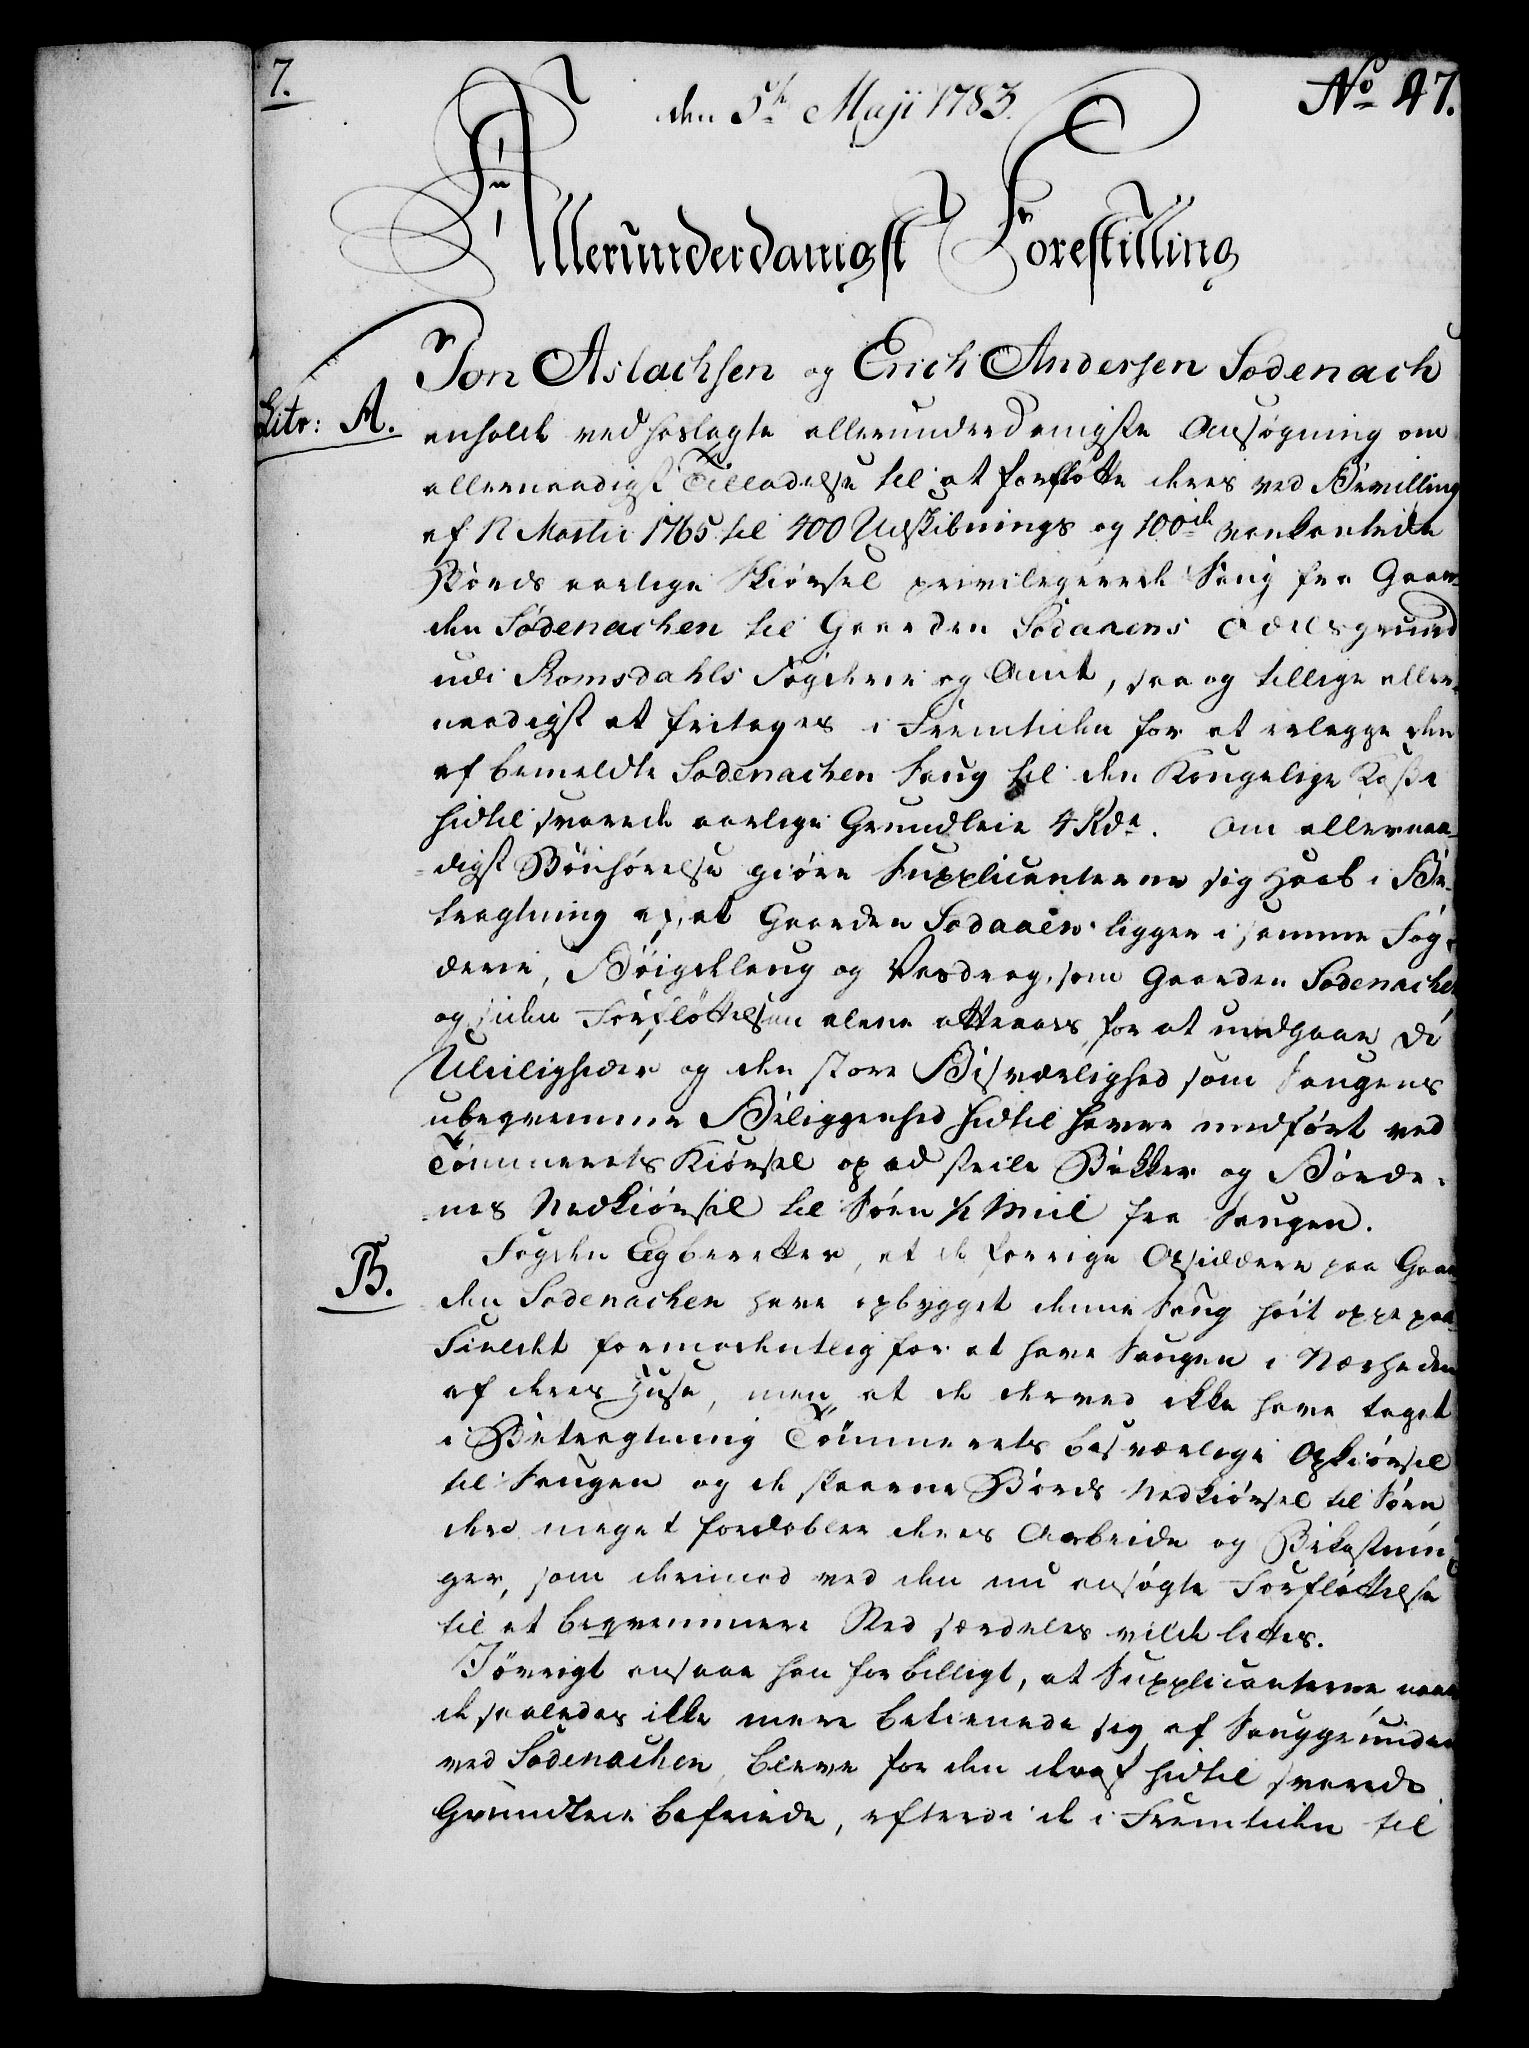 7.
den 5te Maji 1783.
No 47.
Allerunderdanigst Forestilling
Jon Aslachsen og Erich Andersen Sødenach
Litr: A.
anholde ved hoslagte allerunderdanigste Ansøgning om
allernaadigst Tilladelse til at forflötte deres ved Bevilling
af 12 Martii 1765 til 400 Udskibnings og 100de vrankantede
Bords aarlige Skiørsel privilegerede Saug fra Gaar-
den Sødenachen til Gaarden Sødaaens Odelsgrund
udi Romsdahls Fogderie og Amt, saa og tillige aller-
naadigst at fritages i Fremtiden for at erlegge den
af bemeldte Sødenachen Saug til den Kongelige Kasse
hidtil svarede aarlige Grundleie 4 Rdr. Om allernaa-
digst Bönhörelse giöre Supplicanterne sig Haab i Be-
tragtning af, at Gaarden Sødaaen ligger i samme Fog-
derie, Böigdelaug og Vasdrag, som Gaarden Sødenachen
og siden Forflöttelsen alene attraaes, for at undgaae de
Uleiligheder og den store Besværlighed som Saugens
ubeqvemme Beliggenhed hidtil haver medfört ved
Tömmerets Kiörsel op ad steile Bakker og Borde-
nes Nedkiörsel til Söen ½ Miil fra Saugen.
B.
Fogden Eeg beretter, at de forrige Opsiddere paa Gaar-
den Sødenachen have opbygget denne Saug höit oppe paa
Fieldet formodentlig for at have Saugen i Nærheden
af deres Huse, men at de derved ikke have taget
i Betragtning Tömmerets besværlige Opkiörsel
til Saugen og de skaarne Bords Nedkiörsel til Söen,
der meget fordobler deres Arbeide og Bekostnin-
ger, som derimod ved den nu ansögte Forflöttelse
til et beqvemmere Sted særdeles vilde lettes.
Iövrigt ansaae han for billigt, at Supplicanterne naar
de saaledes ikke mere betienede sig af Sauggrunden
ved Sødenachen, bleve for den deraf hidtil svarede
Grundleie befriede, efterdi de i Fremtiden til